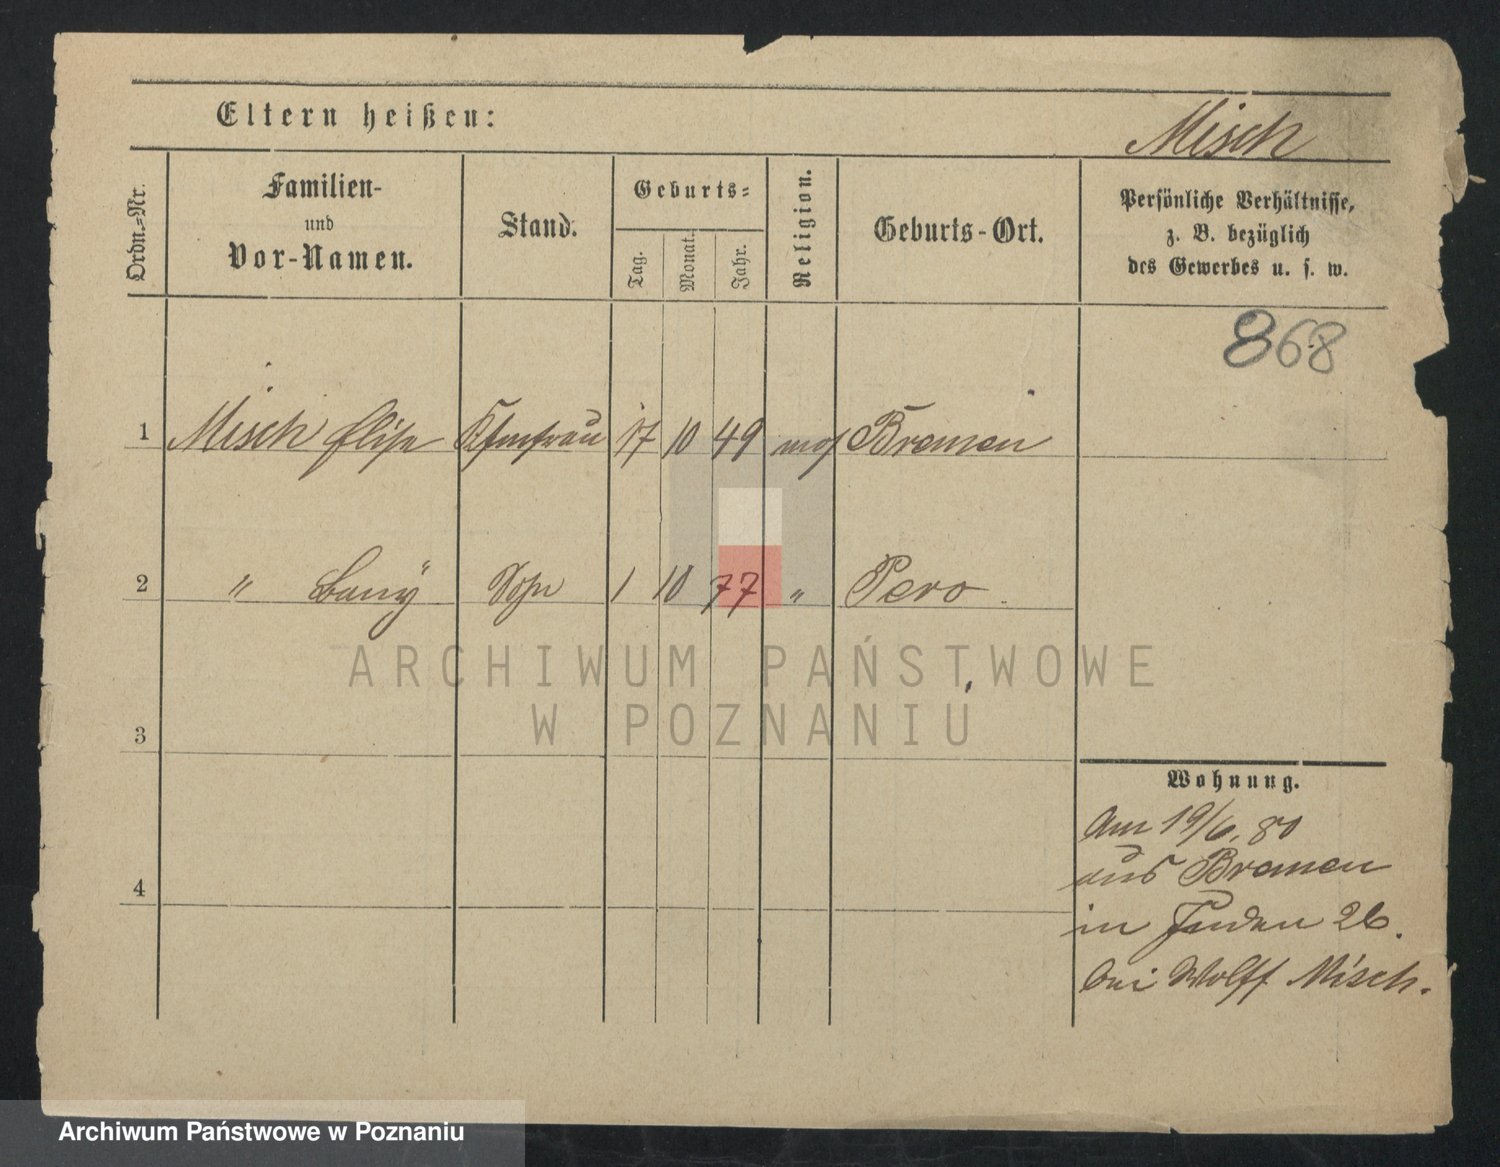 Eltern heißen:
Misch
Ordn.-Nr.
Familien-
und
Vor-Namen.
Stand.
Geburts-
Tag.
Monat.
Jahr.
Religion.
Geburts-Ort.
Persönliche Verhältnisse,
z. B. bezüglich
des Gewerbes u. s. w.
868
1 Misch Elise Kfmfrau 17 10 49 mos Bremen
2 " Sohn 1 10 77 " Pero
ARCHIWUM PAŃSTWOWE
W POZNANIU
3
4
Wohnung.
Am 19/6. 80
aus Bremen
in Juden 26.
bei Wolff Misch.
Archiwum Państwowe w Poznaniu